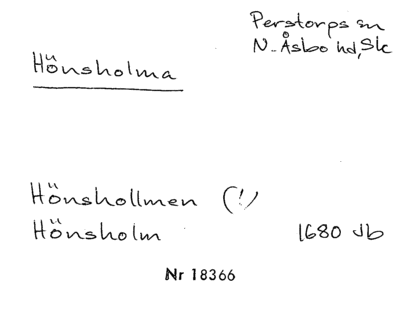 Perstorps sn
N. Åsbo hd, Sk
Hönsholma
Hönshollmen (!)
Hönsholm 1680 Jb
Nr 18366